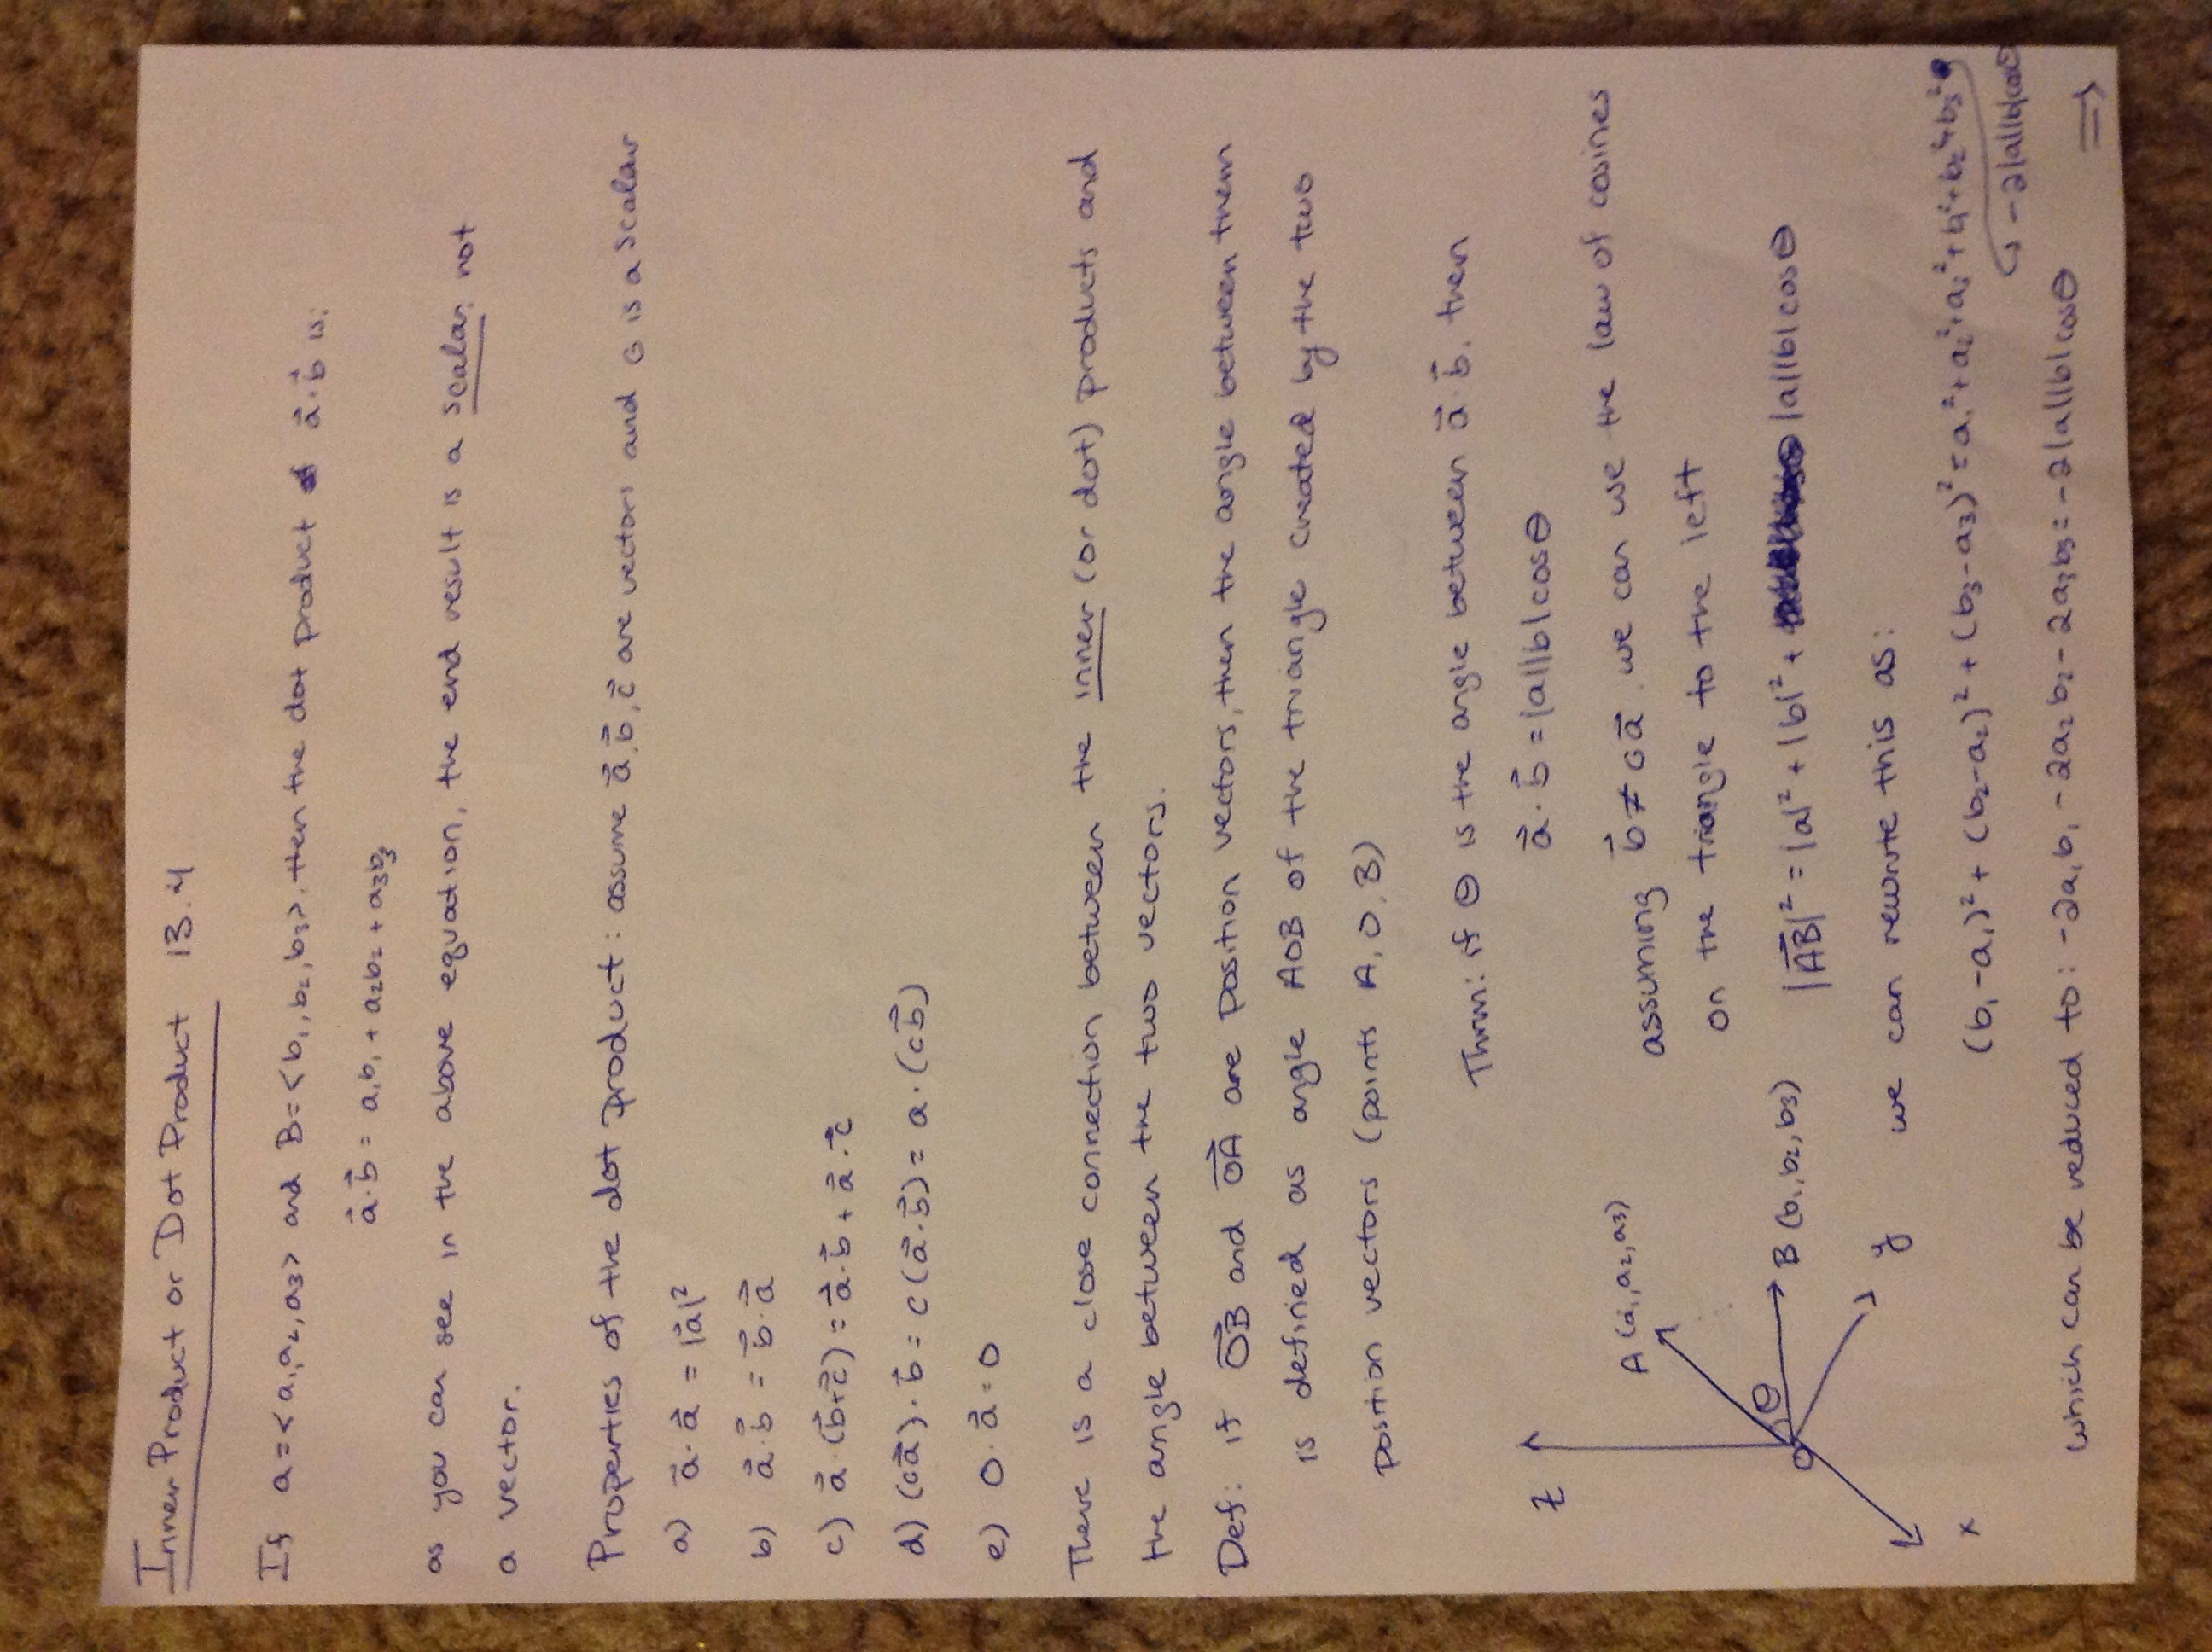 Inner Product or Dot Product 13.4
If a=<a₁,a₂,a₃> and B=<b₁,b₂,b₃>, then the dot product a⃗·b⃗ is:
a⃗·b⃗ = a₁b₁ + a₂b₂ + a₃b₃
as you can see in the above equation, the end result is a scalar, not
a vector.
Properties of the dot product: assume a⃗,b⃗,c⃗ are vectors and c is a scalar
a) a⃗·a⃗ = |a⃗|²
b) a⃗·b⃗ = b⃗·a⃗
c) a⃗·(b⃗+c⃗) = a⃗·b⃗ + a⃗·c⃗
d) (ca⃗)·b⃗ = c(a⃗·b⃗) = a·(cb⃗)
e) 0·a⃗=0
There is a close connection between the inner (or dot) products and
the angle between the two vectors.
Def: if OB⃗ and OA⃗ are position vectors, then the angle between them
is defined as angle AOB of the triangle created by the two
position vectors (points A,O,B)
Thrm: if θ is the angle between a⃗·b⃗, then
a⃗·b⃗ = |a||b|cosθ
assuming b⃗ ≠ ca⃗, we can use the law of cosines
on the triangle to the left
z
A (a₁,a₂,a₃)
θ
O
B (b₁,b₂,b₃)
y
x
|AB⃗|² = |a|² + |b|² + |a||b|cosθ
we can rewrite this as:
(b₁-a₁)² + (b₂-a₂)² + (b₃-a₃)² = a₁²+a₂²+a₃²+b₁²+b₂²+b₃²
-2|a||b|cosθ
which can be reduced to: -2a₁b₁-2a₂b₂-2a₃b₃=-2|a||b|cosθ
⇒